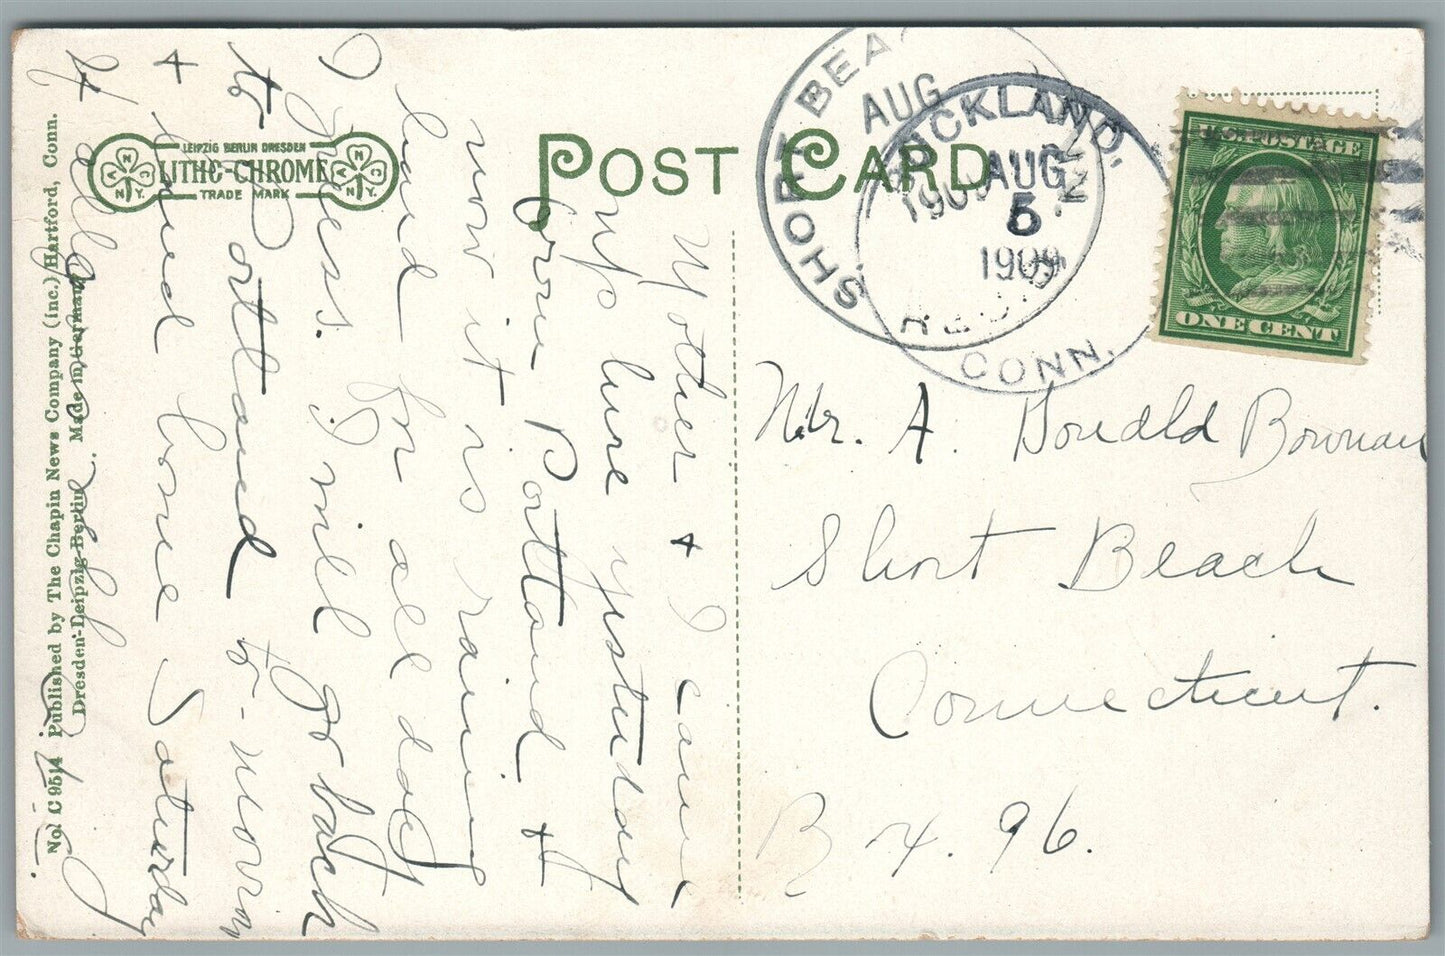 POST CARD
LEIPZIG BERLIN DRESDEN
LITHO-CHROME
TRADE MARK
A N N Y.
A N C N.Y.
No. C 9514 Published by The Chapin News Company (Inc.) Hartford, Conn.
Dresden-Leipzig-Berlin. Made in Germany
SHORT BEA
AUG
1909
CONN.
ROCKLAND,
AUG
5
1909
REC'D
U.S. POSTAGE
ONE CENT
Mr. A. Donald Bowman
Short Beach
Connecticut.
Bx. 96.
Mother + I came
up here yesterday
from Portland +
now it is raining
hard for all day
I guess. I will go back
to Portland to-morrow
+ arrived home Saturday